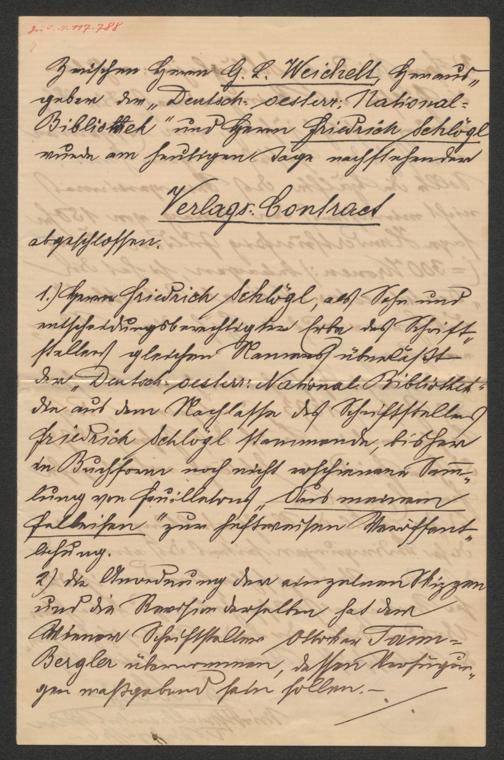 J. N. 117.788
Zwischen Herrn G. L. Weichelt, Heraus-
geber der „Deutsch-oesterr: National-
Bibliothek" und Herrn Friedrich Schlögl
wurde am heutigen Tage nachstehender
Verlags-Contract
abgeschlossen.
1.) Herr Friedrich Schlögl, als Sohn und
entscheidungsberechtigter Erbe des Schrift-
stellers gleichen Namens überläßt
der „Deutsch-oesterr: National-Bibliothek"
die aus dem Nachlasse des Schriftstellers
Friedrich Schlögl stammende, bisher
in Buchform noch nicht erschienene Samm-
lung von Feuilletons „Aus meinem
Felleisen" zur heftweisen Veröffent-
lichung.
2) Die Anordnung der einzelnen Skizzen
und die Revision derselben hat der
Wiener Schriftsteller Ottokar Tann-
Bergler übernommen, dessen Verfügun-
gen maßgebend sein sollen.—